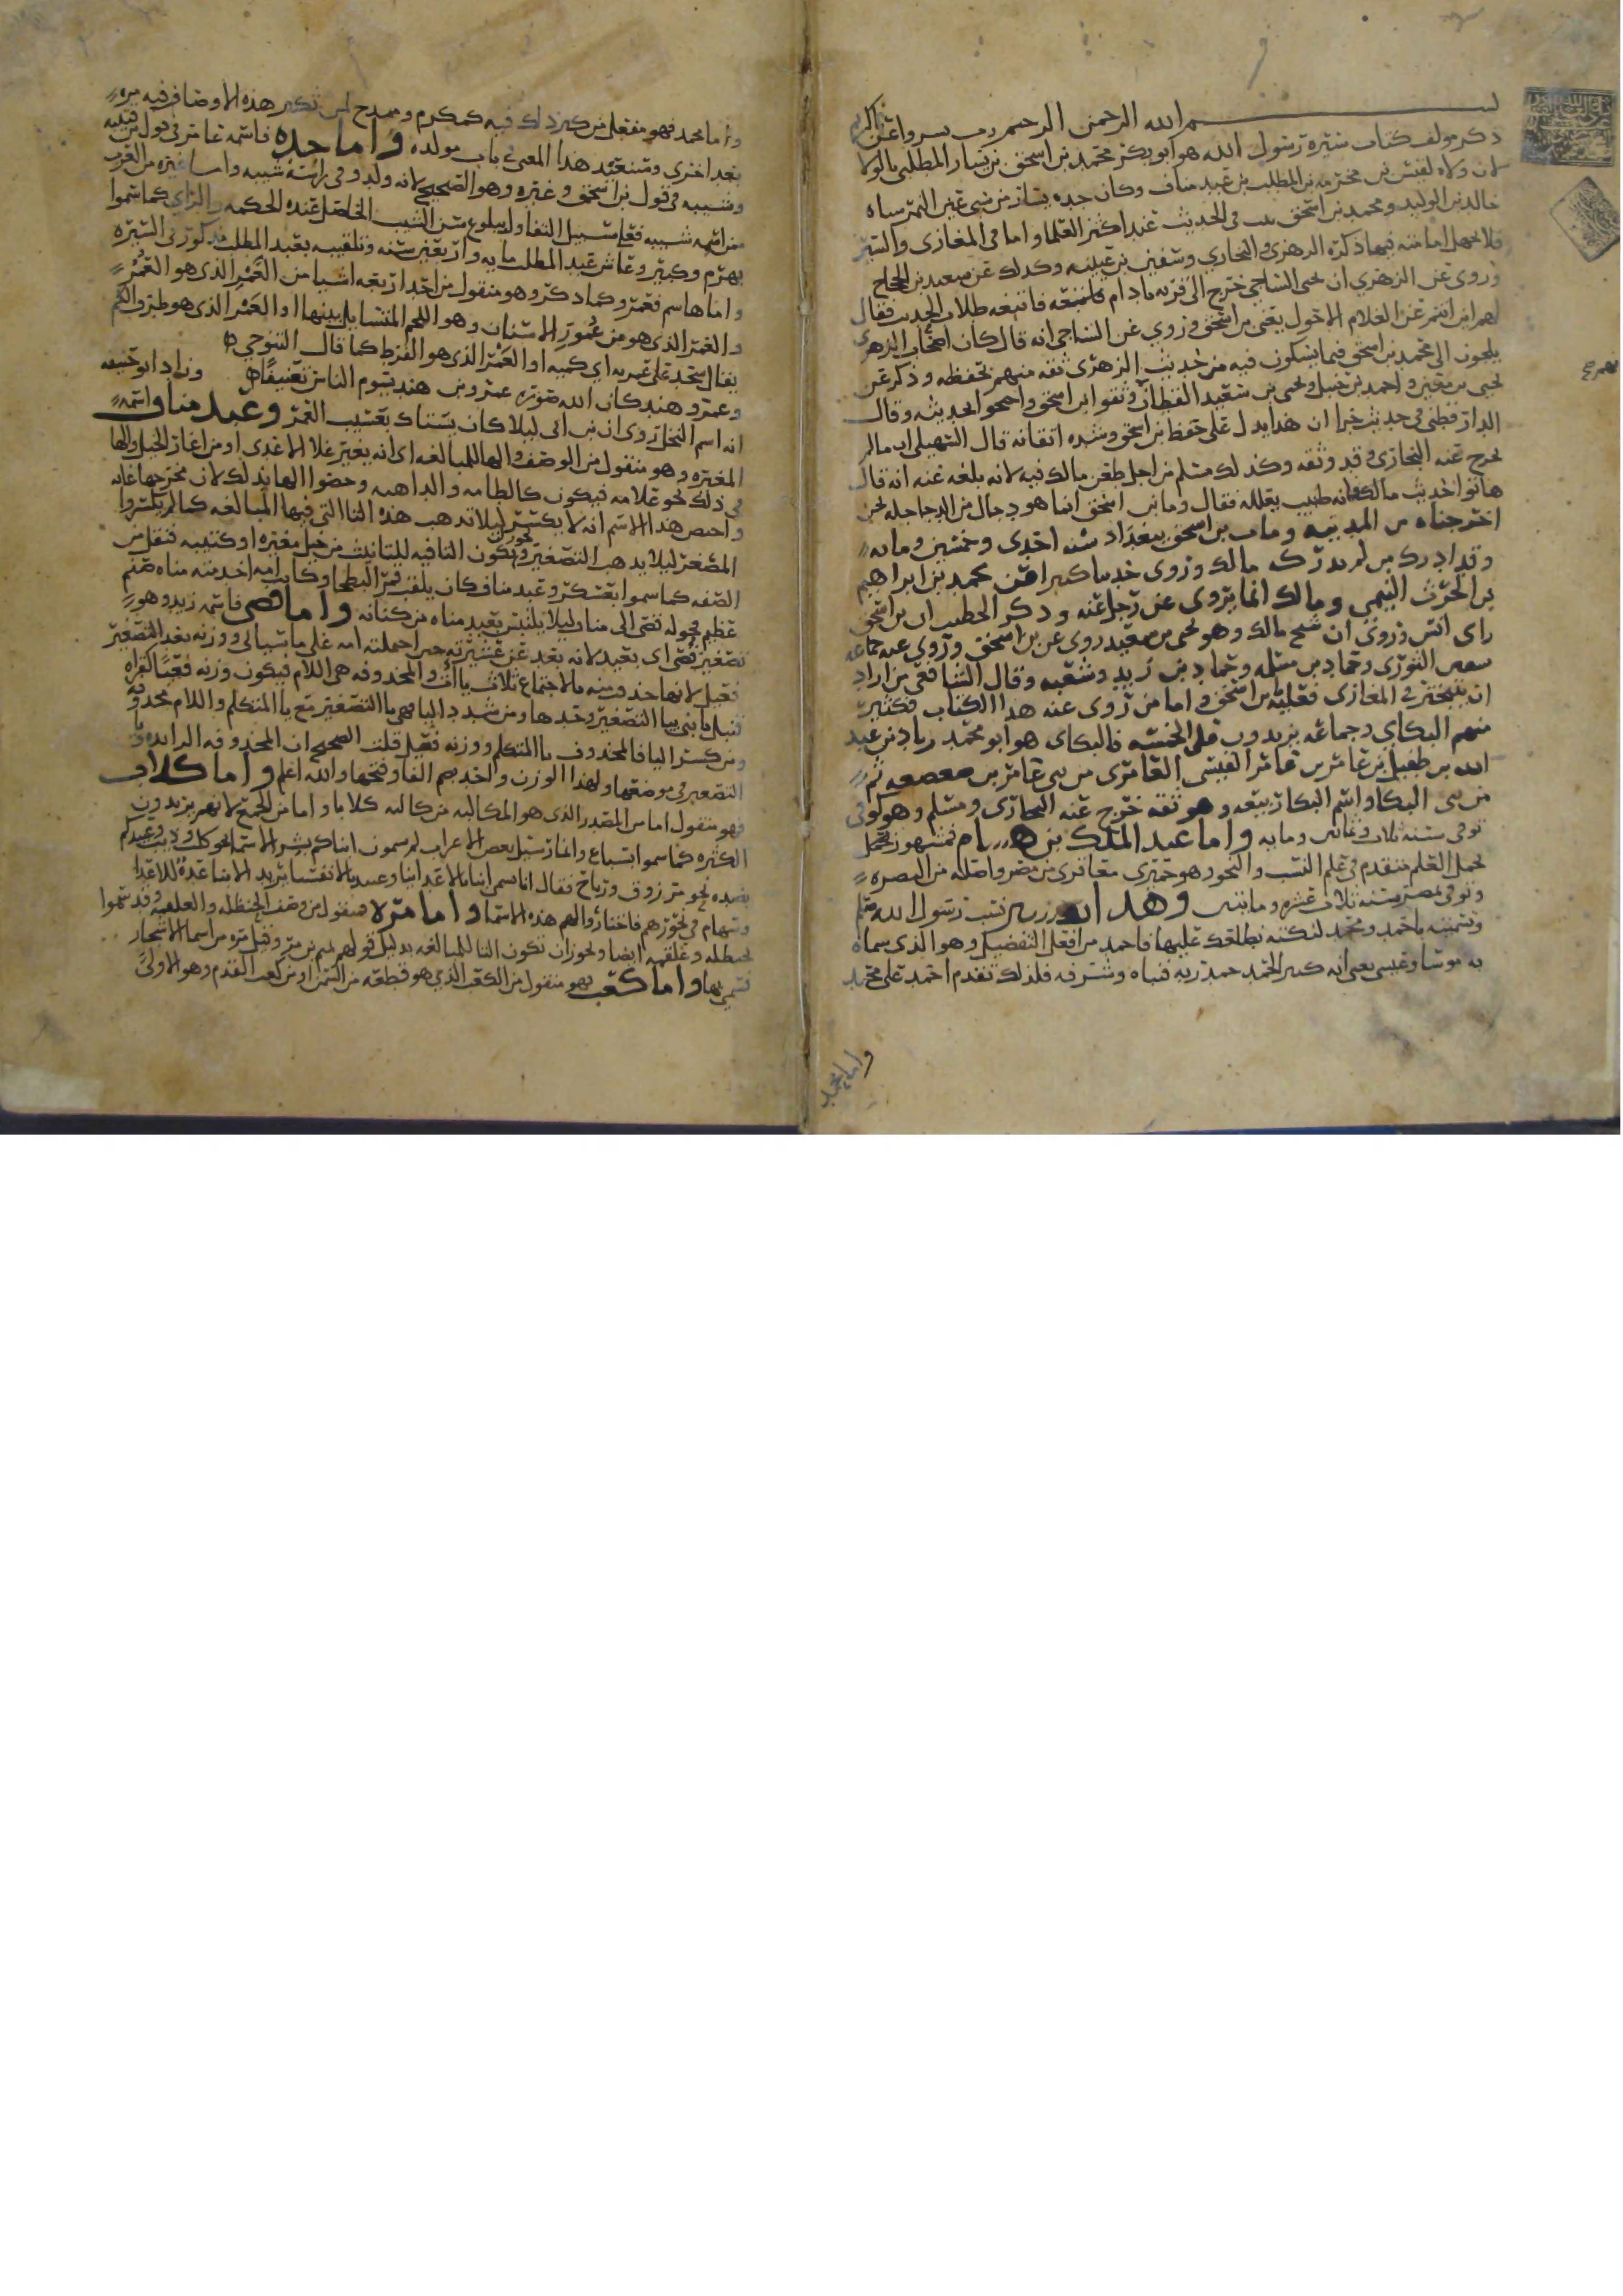 بسم الله الرحمن الرحيم رب يسر واعن يا كريم
ذكر مولف كتاب سيره رسول الله هو ابو بكر محمد بن اسحق بن يسار المطلبي بالولا
لان ولاه لقيس بن مخرمه بن المطلب بن عبد مناف وكان جده يسار من سبي عين التمر سباه
خالد بن الوليد ومحمد بن اسحق ثبت في الحديث عند اكثر العلما واما في المغازي والسير
فلا تجهل امامته فيها ذكره الزهري والبخاري وسفين بن عيينه وكذلك عن سعيد بن الحجاج
وروي عن الزهري ان يحيى الساجي خرج الى قريه باذام فاتبعه طلاب الحديث فقال
لهم اين انتم عن الغلام الاحول يعني بن اسحق وروي عن الساجي انه قال كان اصحاب الزهري
يلجون الى محمد بن اسحق فيما يشكون فيه من حديث الزهري ثقه منهم بحفظه وذكر عن
يحيى بن معين واحمد بن حنبل ويحيى بن سعيد القطان وثقوا ابن اسحق واحتجوا بحديثه وقال
الدارقطني في حديث خبرا ان هذا يدل على حفظ بن اسحق وشده اتقانه قال السهيلي انما لم
يخرج عنه البخاري وقد وثقه وكذلك مسلم من اجل طعن مالك فيه لانه بلغه عنه انه قال
هاتوا حديث مالك فانه طبيب بعلله فقال وما بن اسحق انما هو دجال من الدجاجله نحن
اخرجناه من المدينه ومات بن اسحق ببغداد سنه احدى وخمسين ومايه
وقد ادرك من لم يدركه مالك وروى حديثا كثيرا عن محمد بن ابراهيم
بن الحرث التيمي ومالك انما يروي عن رجل عنه وذكر الخطيب ان بن اسحق
راى انس وروى ان شيخ مالك وهو يحيى بن سعيد روى عن بن اسحق وروى عنه جماعه
سفين الثوري وحماد بن سلمه وحماد بن زيد وشعبه وقال الشافعي من اراد
ان يتبحر في المغازي فعليه بن اسحق واما من روى عنه هذا الكتاب فكثير
منهم البكاي وجماعه يزيدون على الخمسه فالبكاي هو ابو محمد زياد بن عبد
الله بن طفيل بن عامر القيسي العامري من بني عامر بن صعصعه ثم
من بني البكا واسم البكا ربيعه وهو ثقه خرج عنه البخاري ومسلم وهو كوفي
توفي سنه ثلاث وثمانين ومايه واما عبد الملك بن هشام فمشهور بحمل
العلم متقدم في علم النسب والنحو وهو حميري معافري من مصر واصله من البصره
وتوفي بمصر سنه ثلاث عشره ومايتين وهذا نسب رسول الله
وتسميته باحمد ومحمد لنكته نطلعك عليها فاحمد من افعل التفضيل وهو الذي سماه
به موسى وعيسى يعني انه حمد ربه فنباه وشرفه فلذلك تقدم احمد على محمد
واما محمد
واما محمد فهو مفعل من كبر ذلك فيه كمكرم وممدح لمن تكبر هذه الاوصاف فيه مره
بعد اخرى وسنعيد هذا المعنى باب مولده واما جده فاسمه عامر في قول بن قتيبه
وشيبه في قول بن اسحق وغيره وهو الصحيح لانه ولد وفي راسه شيبه واما غيره من العرب
من اسمه شيبه فعلى سبيل التفاول ببلوغ سن الشيب الحاصل عنده الحكمه والراي كما سموا
بهرم وكبير وعاش عبد المطلب مايه واربعين سنه وتلقيبه بعبد المطلب مذكور في السيره
واما هاشم فعمرو كما ذكر وهو منقول من احد اربعه اشيا من العمر الذي هو العمر
والعمر الذي هو من عمور الاسنان وهو اللحم المتسايل بينها او العمر الذي هو طرف الكم
يقال سجد على عمريه اي كميه او العمر الذي هو القرط كما قال التنوخي
وعمرو هند كان الله صوره عمرو بن هند يسوم الناس تعنيفا وزاد ابو حنيفه
انه اسم النخل روى ان بن ابي ليلا كان يستاك بعسيب العمر وعبد مناف اسمه
المغيره وهو منقول من الوصف والها للمبالغه اي انه يغير علا الاعدى او من اغار الحبل والها
في ذلك نحو علامه فيكون كالطامه والداهيه وخصوا الها بذلك لان مخرجها غايه
واحص هذا الاسم انه لا يكسر ليلا تذهب هذه التا التي فيها المبالغه كما لم يكسروا
المصغر ليلا يذهب التصغير ويجوز ان تكون التا فيه للتانيث من خيل مغيره او كتيبه فنقل من
الصفه كما سموا بعسكر وعبد مناف كان يلقب قمر البطحا وكانت امه اخدمته مناه صنم
عظيم فحوله قصي الى مناف ليلا يلتبس بعبد مناه بن كنانه واما قصي فاسمه زيد وهو
تصغير قصي اي بعيد لانه بعد عن عشيرته حين احملته امه على ما سياتي ووزنه بعد التصغير
فعيل لانها حذف منه بالاجتماع ثلاث يات والمحذوفه هي اللام فيكون وزنه فعيا كقراه
قنبل يا بني بيا التصغير وحدها ومن شدد اليا فهي يا التصغير مع يا المتكلم واللام محذوفه
ومن كسر اليا فالمحذوف يا المتكلم ووزنه فعيل قلت الصحيح ان المحذوفه الزايده
التصغير في موضعها ولهذا الوزن واحد بضم الفا وفتحها والله اعلم واما كلاب
فهو منقول اما من المصدر الذي هو المكالبه من كالبه كلابا واما من الجمع لانهم يريدون
الكثره كما سموا بسباع وانمار سيل بعض الاعراب لم تسمون ابناكم بشر الاسما نحو كلب وذيب وعبيدكم
بضده نحو مرزوق ورباح فقال انما نسمي ابنانا لاعداينا وعبيدنا لانفسنا يريد الابنا عدة للاعدا
وسهام في نحورهم فاختاروا لهم هذه الاسما واما مره فمنقول من وصف الحنظله والعلقمه وقد سموا
بحنظله وعلقمه ايضا ويجوز ان تكون التا للمبالغه بدليل قولهم تميم بن مر وقيل مره من اسما الاشجار
فسمي بها واما كعب فهو منقول من الكعب الذي هو قطعه من السمن او من كعب القدم وهو الاولى